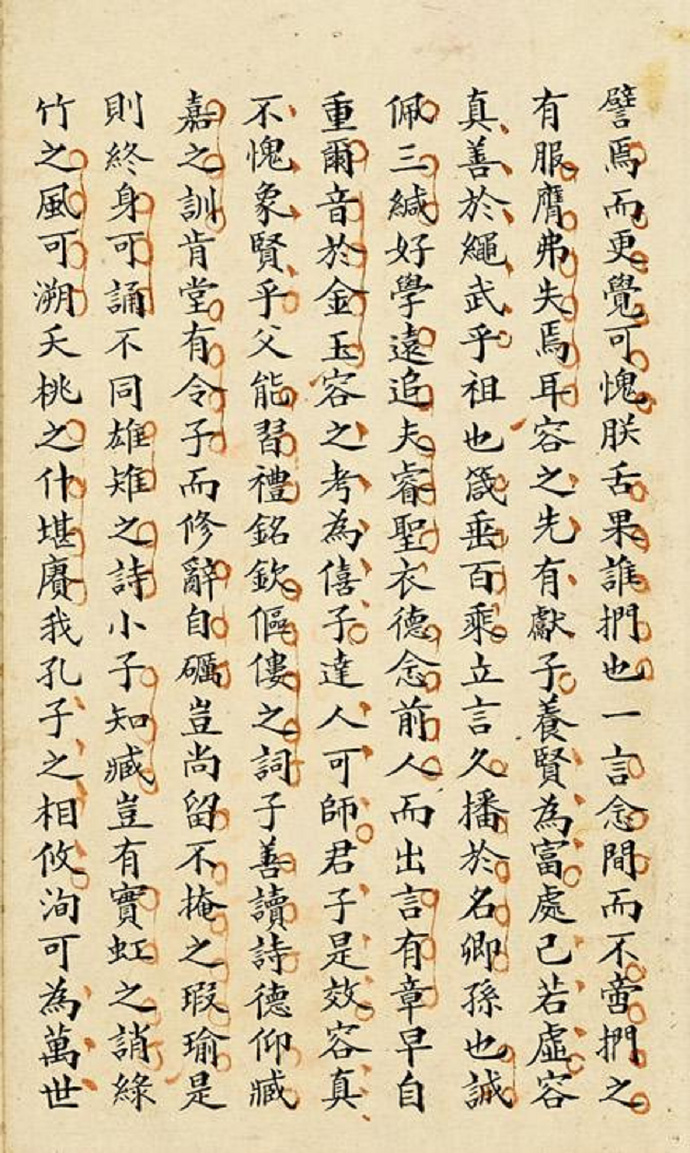 譬焉而更覺可愧朕舌果誰捫也一言念間而不啻捫之
有服膺弗失焉耳容之先有獻子養賢為富處己若虛容
真善於繩武乎祖也箴垂百乘立言久播於名卿孫也誠
佩三緘好學遠追夫睿聖衣德念前人而出言有章早自
重爾音於金玉容之考為僖子達人可師君子是效容真
不愧象賢乎父能習禮銘欽傴僂之詞子善讀詩德仰臧
嘉之訓肯堂有令子而修辭自礪豈尚留不掩之瑕瑜是
則終身可誦不同雄雉之詩小子知臧豈有實虹之誚綠
竹之風可溯夭桃之什堪賡我孔子之相攸洵可為萬世